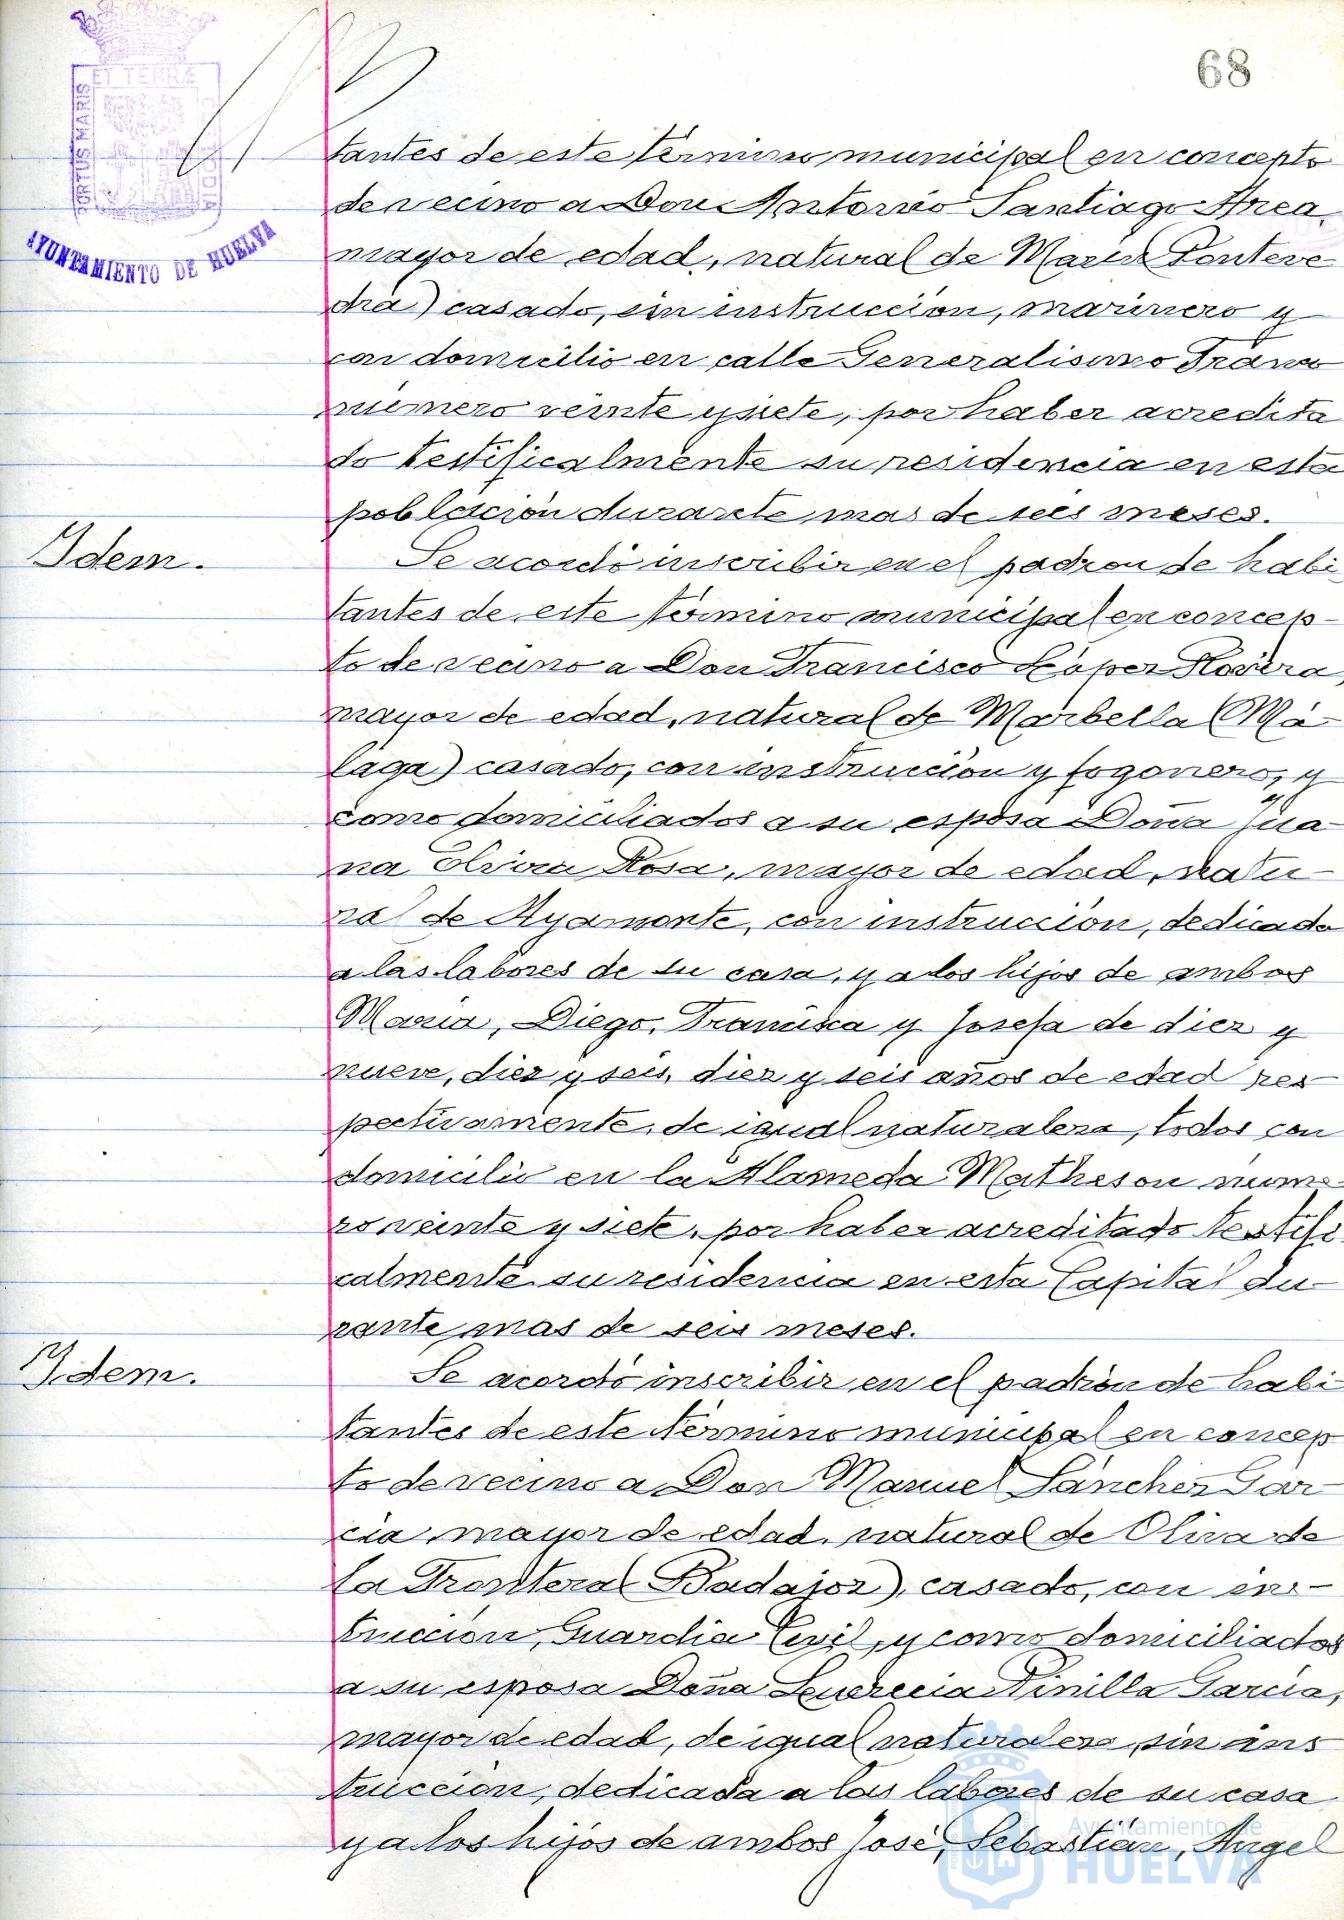 68
ET TERRÆ
PORTUS MARIS
CUSTODIA
AYUNTAMIENTO DE HUELVA
tantes de este término municipal en concepto
de vecino a Don Antonio Santiago Area,
mayor de edad, natural de Marín (Ponteve-
dra) casado, sin instrucción, marinero y
con domicilio en calle Generalisimo Franco
número veinte y siete, por haber acredita
do testificalmente su residencia en esta
población durante mas de seis meses.
Idem.
Se acordó inscribir en el padron de habi-
tantes de este término municipal en concep-
to de vecino a Don Francisco López Rovira,
mayor de edad, natural de Marbella (Má-
laga) casado, con instrucción y fogonero, y
como domiciliados a su esposa Doña Jua-
na Elvira Rosa, mayor de edad, natu-
ral de Ayamonte, con instrucción, dedicada
a las labores de su casa, y a los hijos de ambos
Maria, Diego, Francisca y Josefa de diez y
nueve, diez y seis, diez y seis años de edad res-
pectivamente, de igual naturaleza, todos con
domicilio en la Alameda Matheson núme-
ro veinte y siete, por haber acreditado testifi-
calmente su residencia en esta Capital du-
rante mas de seis meses.
Idem.
Se acordó inscribir en el padrón de habi-
tantes de este término municipal en concep
to de vecino a Don Manuel Sánchez Gar-
cia, mayor de edad, natural de Oliva de
la Frontera (Badajoz), casado, con ins-
trucción, Guardia Civil, y como domiciliados
a su esposa Doña Lucrecia Pinilla García,
mayor de edad, de igual naturaleza, sin ins
trucción, dedicada a las labores de su casa
y a los hijos de ambos José, Sebastián, Angel
Ayuntamiento de
HUELVA